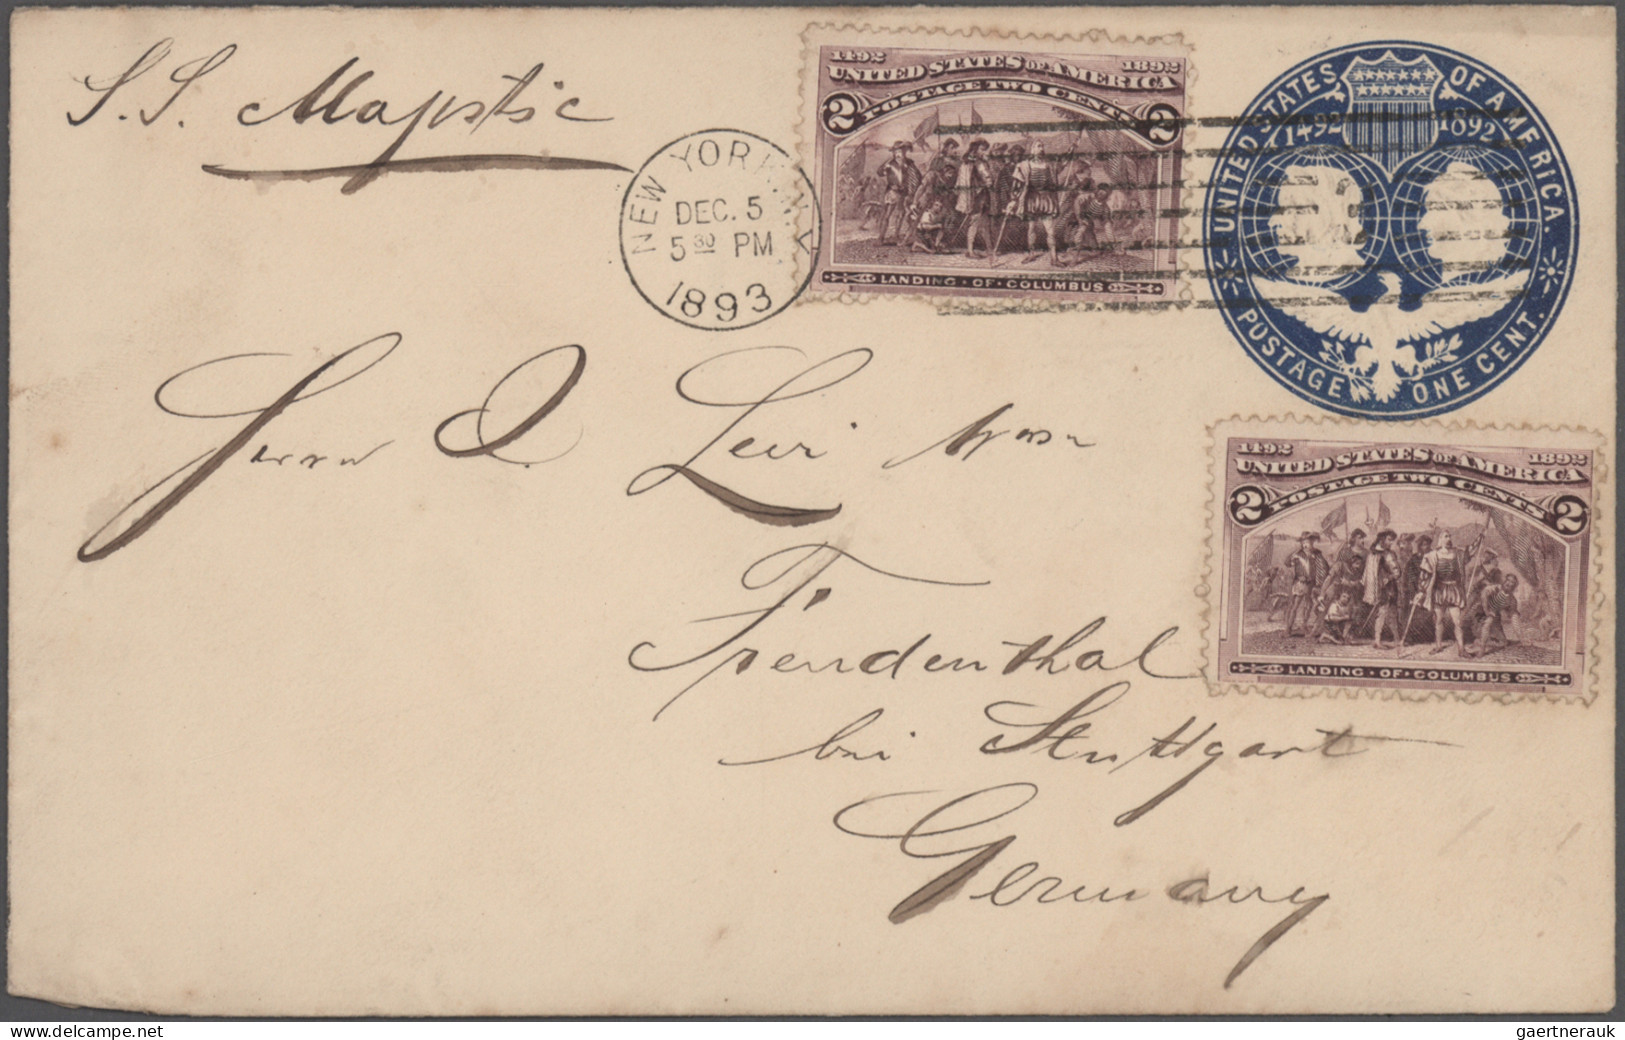 S.S. Majestic
1492 1892
UNITED STATES OF AMERICA
POSTAGE TWO CENTS
2 2
LANDING · OF · COLUMBUS
NEW YORK, N.Y.
DEC. 5
5 30 PM
1893
UNITED STATES OF AMERICA.
1492 1892
POSTAGE ONE CENT.
Herrn D. Levi
1492 1892
UNITED STATES OF AMERICA
POSTAGE TWO CENTS
2 2
LANDING · OF · COLUMBUS
Freudenthal
bei Stuttgart
Germany
gaertnerauk